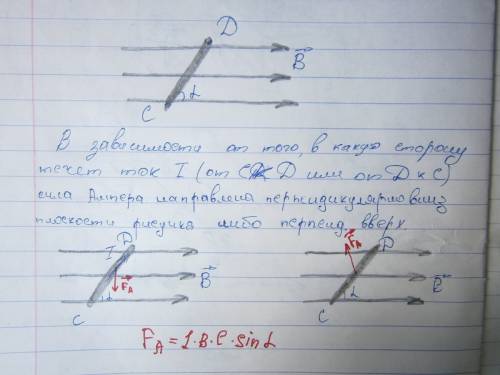 D
B
C α
В зависимости от того, в какую сторону
течет ток I (от C к D или от D к C)
сила Ампера направлена перпендикулярно вниз
плоскости рисунка либо перпенд. вверх
I D F_A B C α
F_A D B C α
F_A = I·B·l·sin α